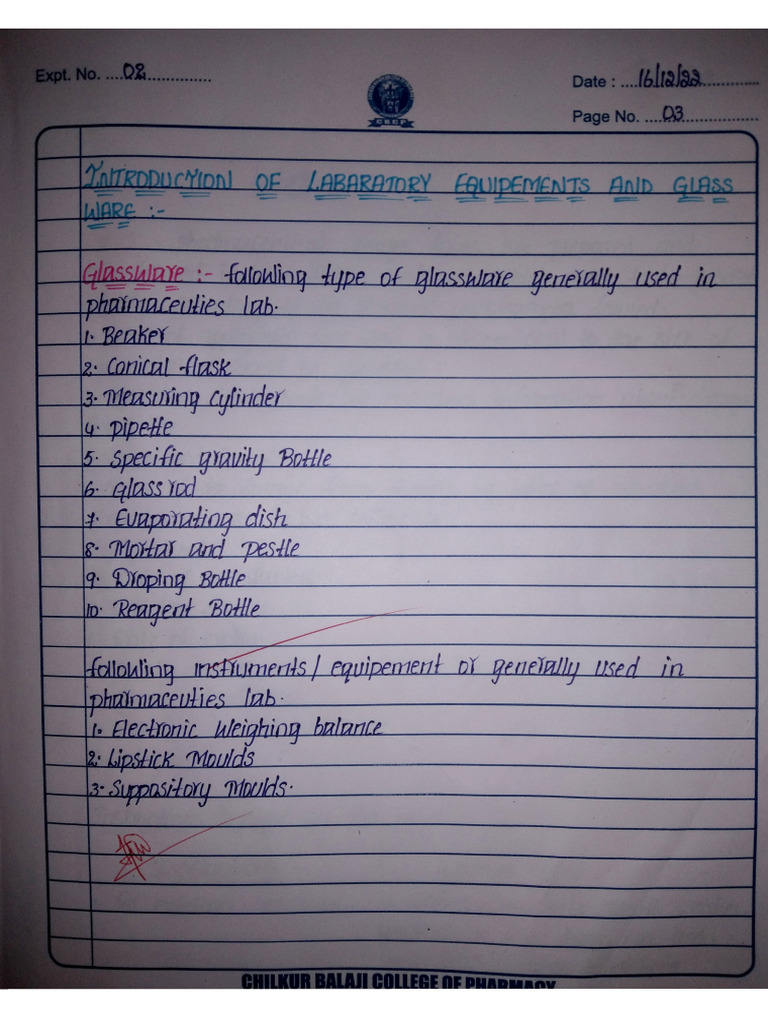 Expt. No. ....02..............
Date : ....16/12/22..............
Page No. ....03..................
CBCP
INTRODUCTION OF LABARATORY EQUIPEMENTS AND GLASS
WARE :-
Glassware :- following type of glassware generally used in
pharmaceuties lab.
1. Beaker
2. Conical flask
3. Measuring cylinder
4. pipette
5. Specific gravity Bottle
6. Glass rod
7. Evaporating dish
8. Mortar and pestle
9. Droping Bottle
10. Reagent Bottle
following instruments/ equipement or generally used in
pharmaceuties lab.
1. Electronic weighing balance
2. Lipstick Moulds
3. Suppository Moulds.
CHILKUR BALAJI COLLEGE OF PHARMACY